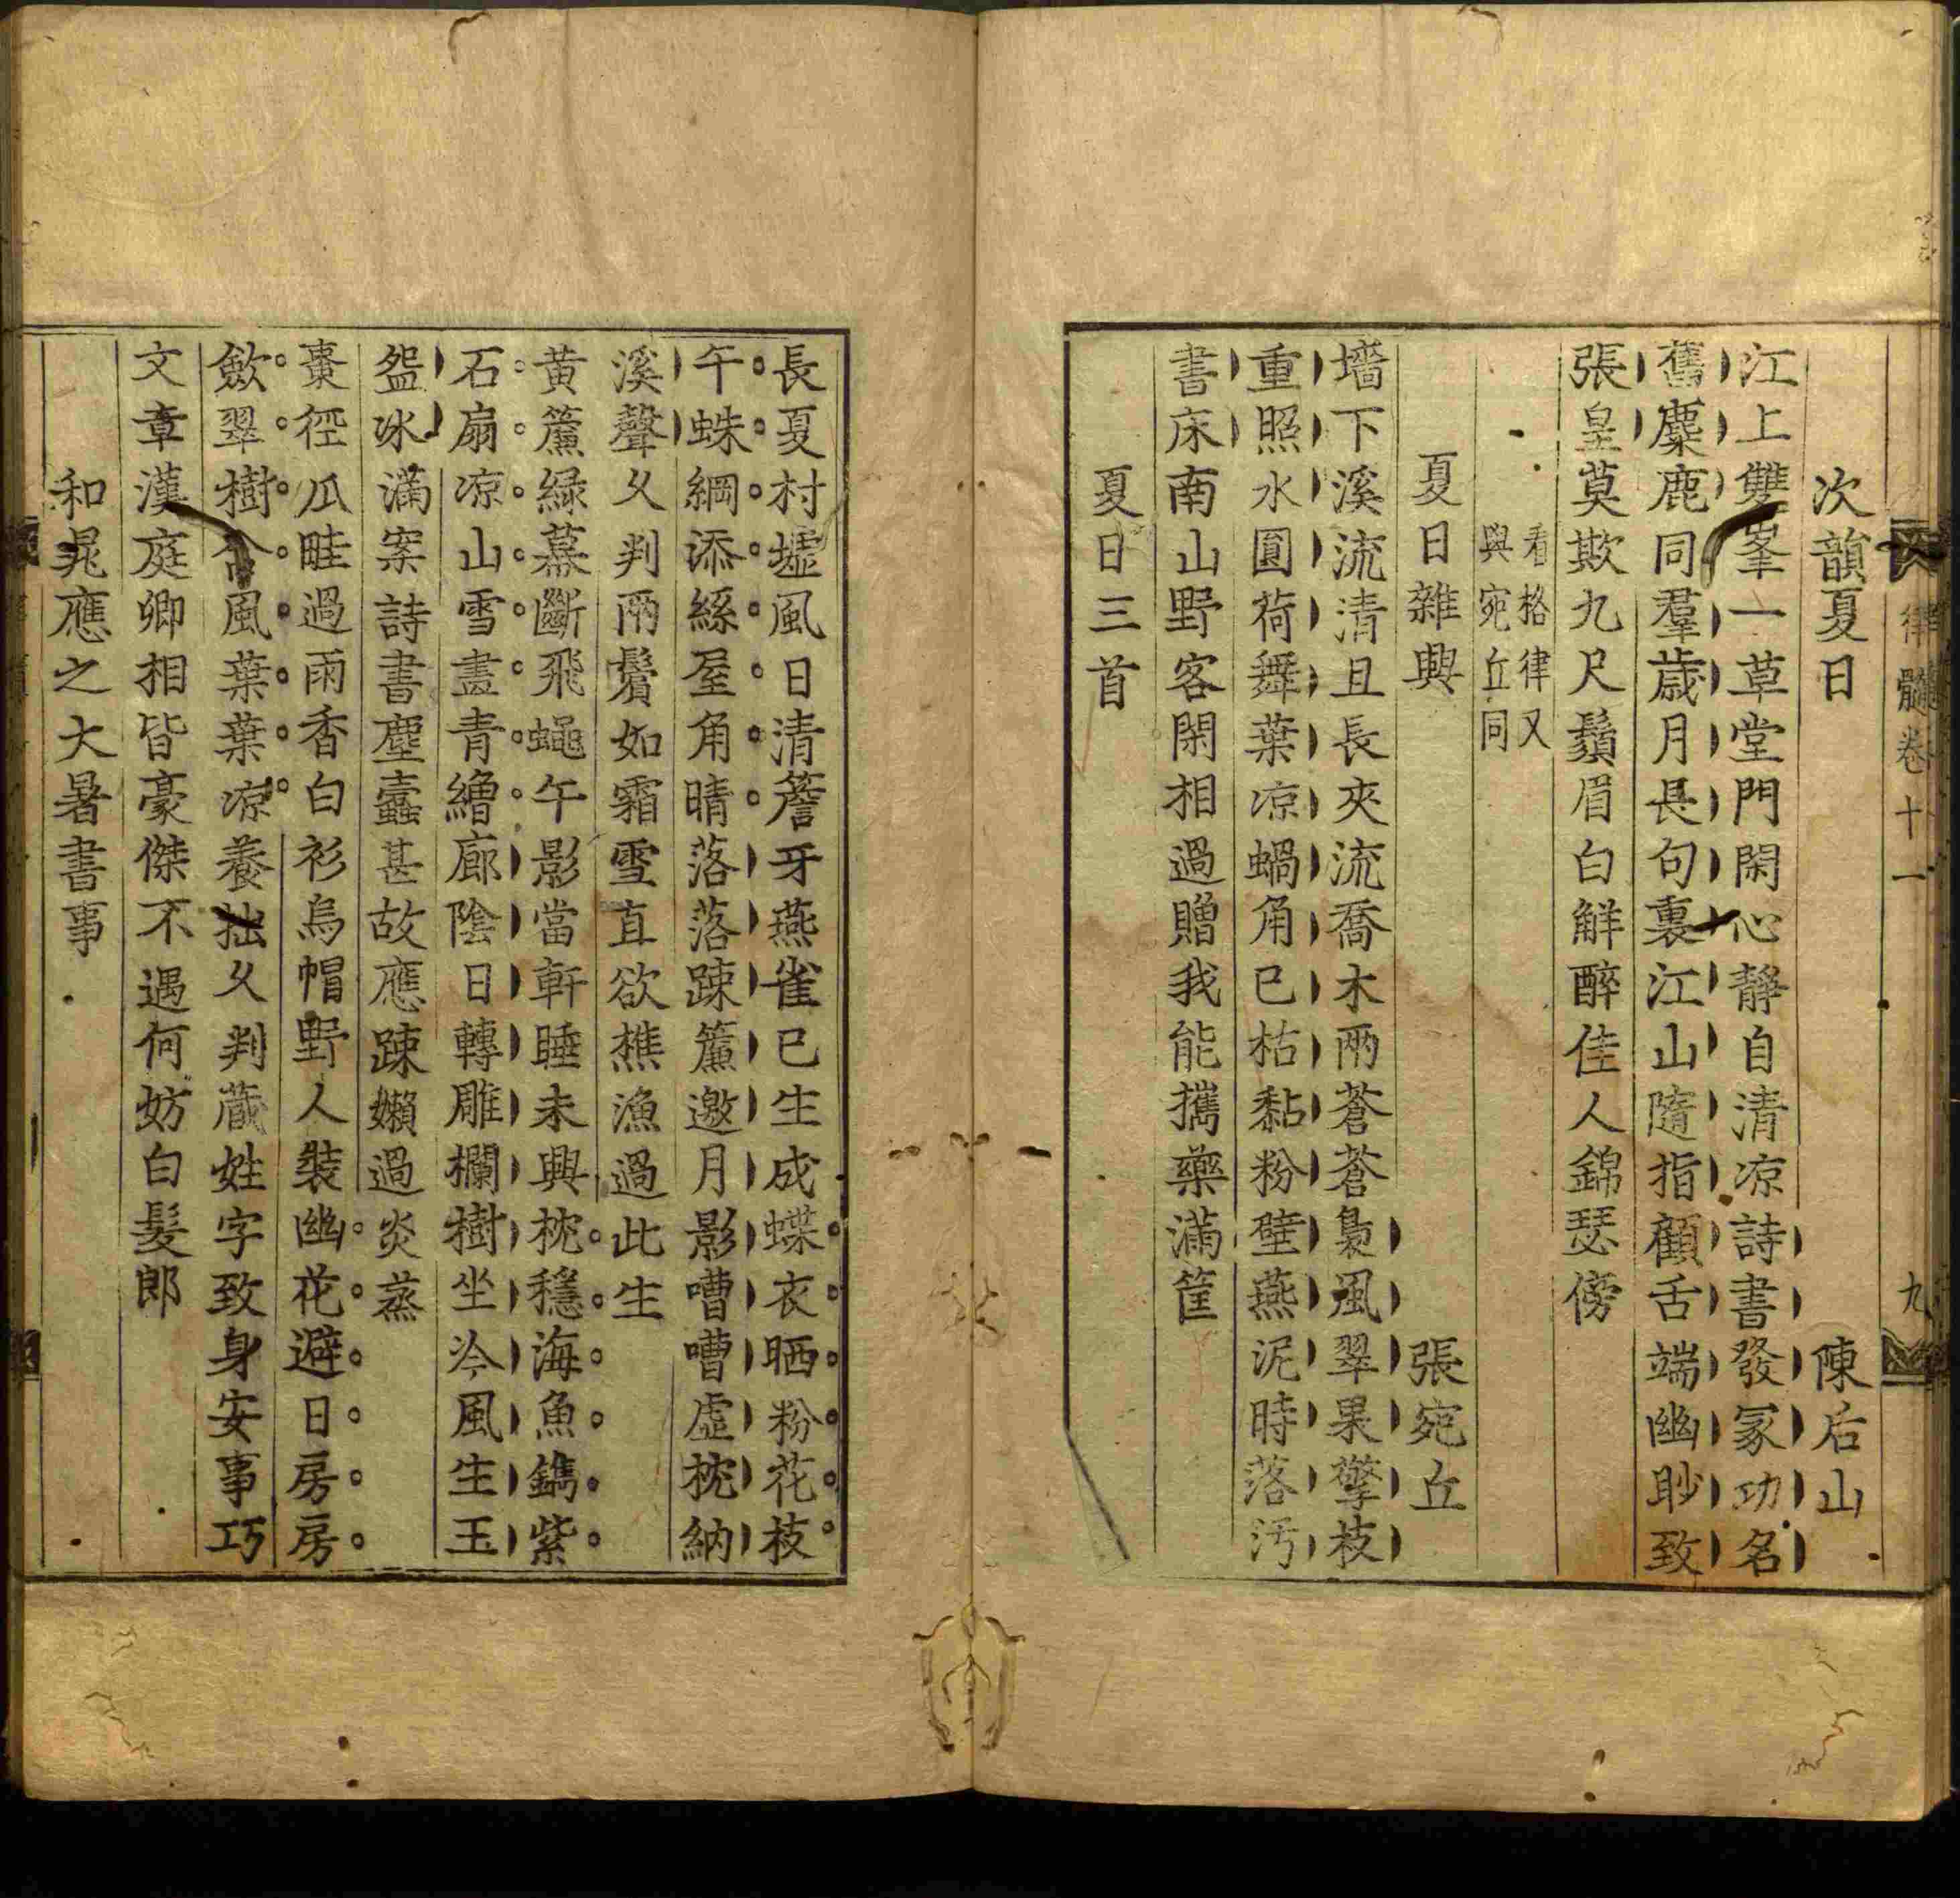 律髓卷十一 九
次韻夏日 陳后山
江上雙峯一草堂門閑心靜自清凉詩書發冢功名
舊麋鹿同羣歲月長句裏江山隨指顧舌端幽眇致
張皇莫欺九尺鬚眉白鮮醉佳人錦瑟傍
看格律又
與宛丘同
夏日雜興 張宛丘
墻下溪流清且長夾流喬木兩蒼蒼裊風翠果擎枝
重照水圓荷舞葉凉蝸角已枯黏粉壁燕泥時落汚
書床南山野客閑相過贈我能攜藥滿筐
夏日三首
長夏村墟風日清簷牙燕雀已生成蝶衣晒粉花枝
午蛛網添絲屋角晴落落踈簾邀月影嘈嘈虛枕納
溪聲乆判兩鬢如霜雪直欲樵漁過此生
黄簾綠幕斷飛蠅午影當軒睡未興枕穩海魚鐫紫
石扇凉山雪畫青繒廊陰日轉雕欄樹坐冷風生玉
盌冰滿案詩書塵蠹甚故應踈嬾過炎蒸
棗徑瓜畦過雨香白衫烏帽野人裝幽花避日房房
斂翠樹含風葉葉凉養拙乆判藏姓字致身安事巧
文章漢庭卿相皆豪傑不遇何妨白髮郎
和晁應之大暑書事